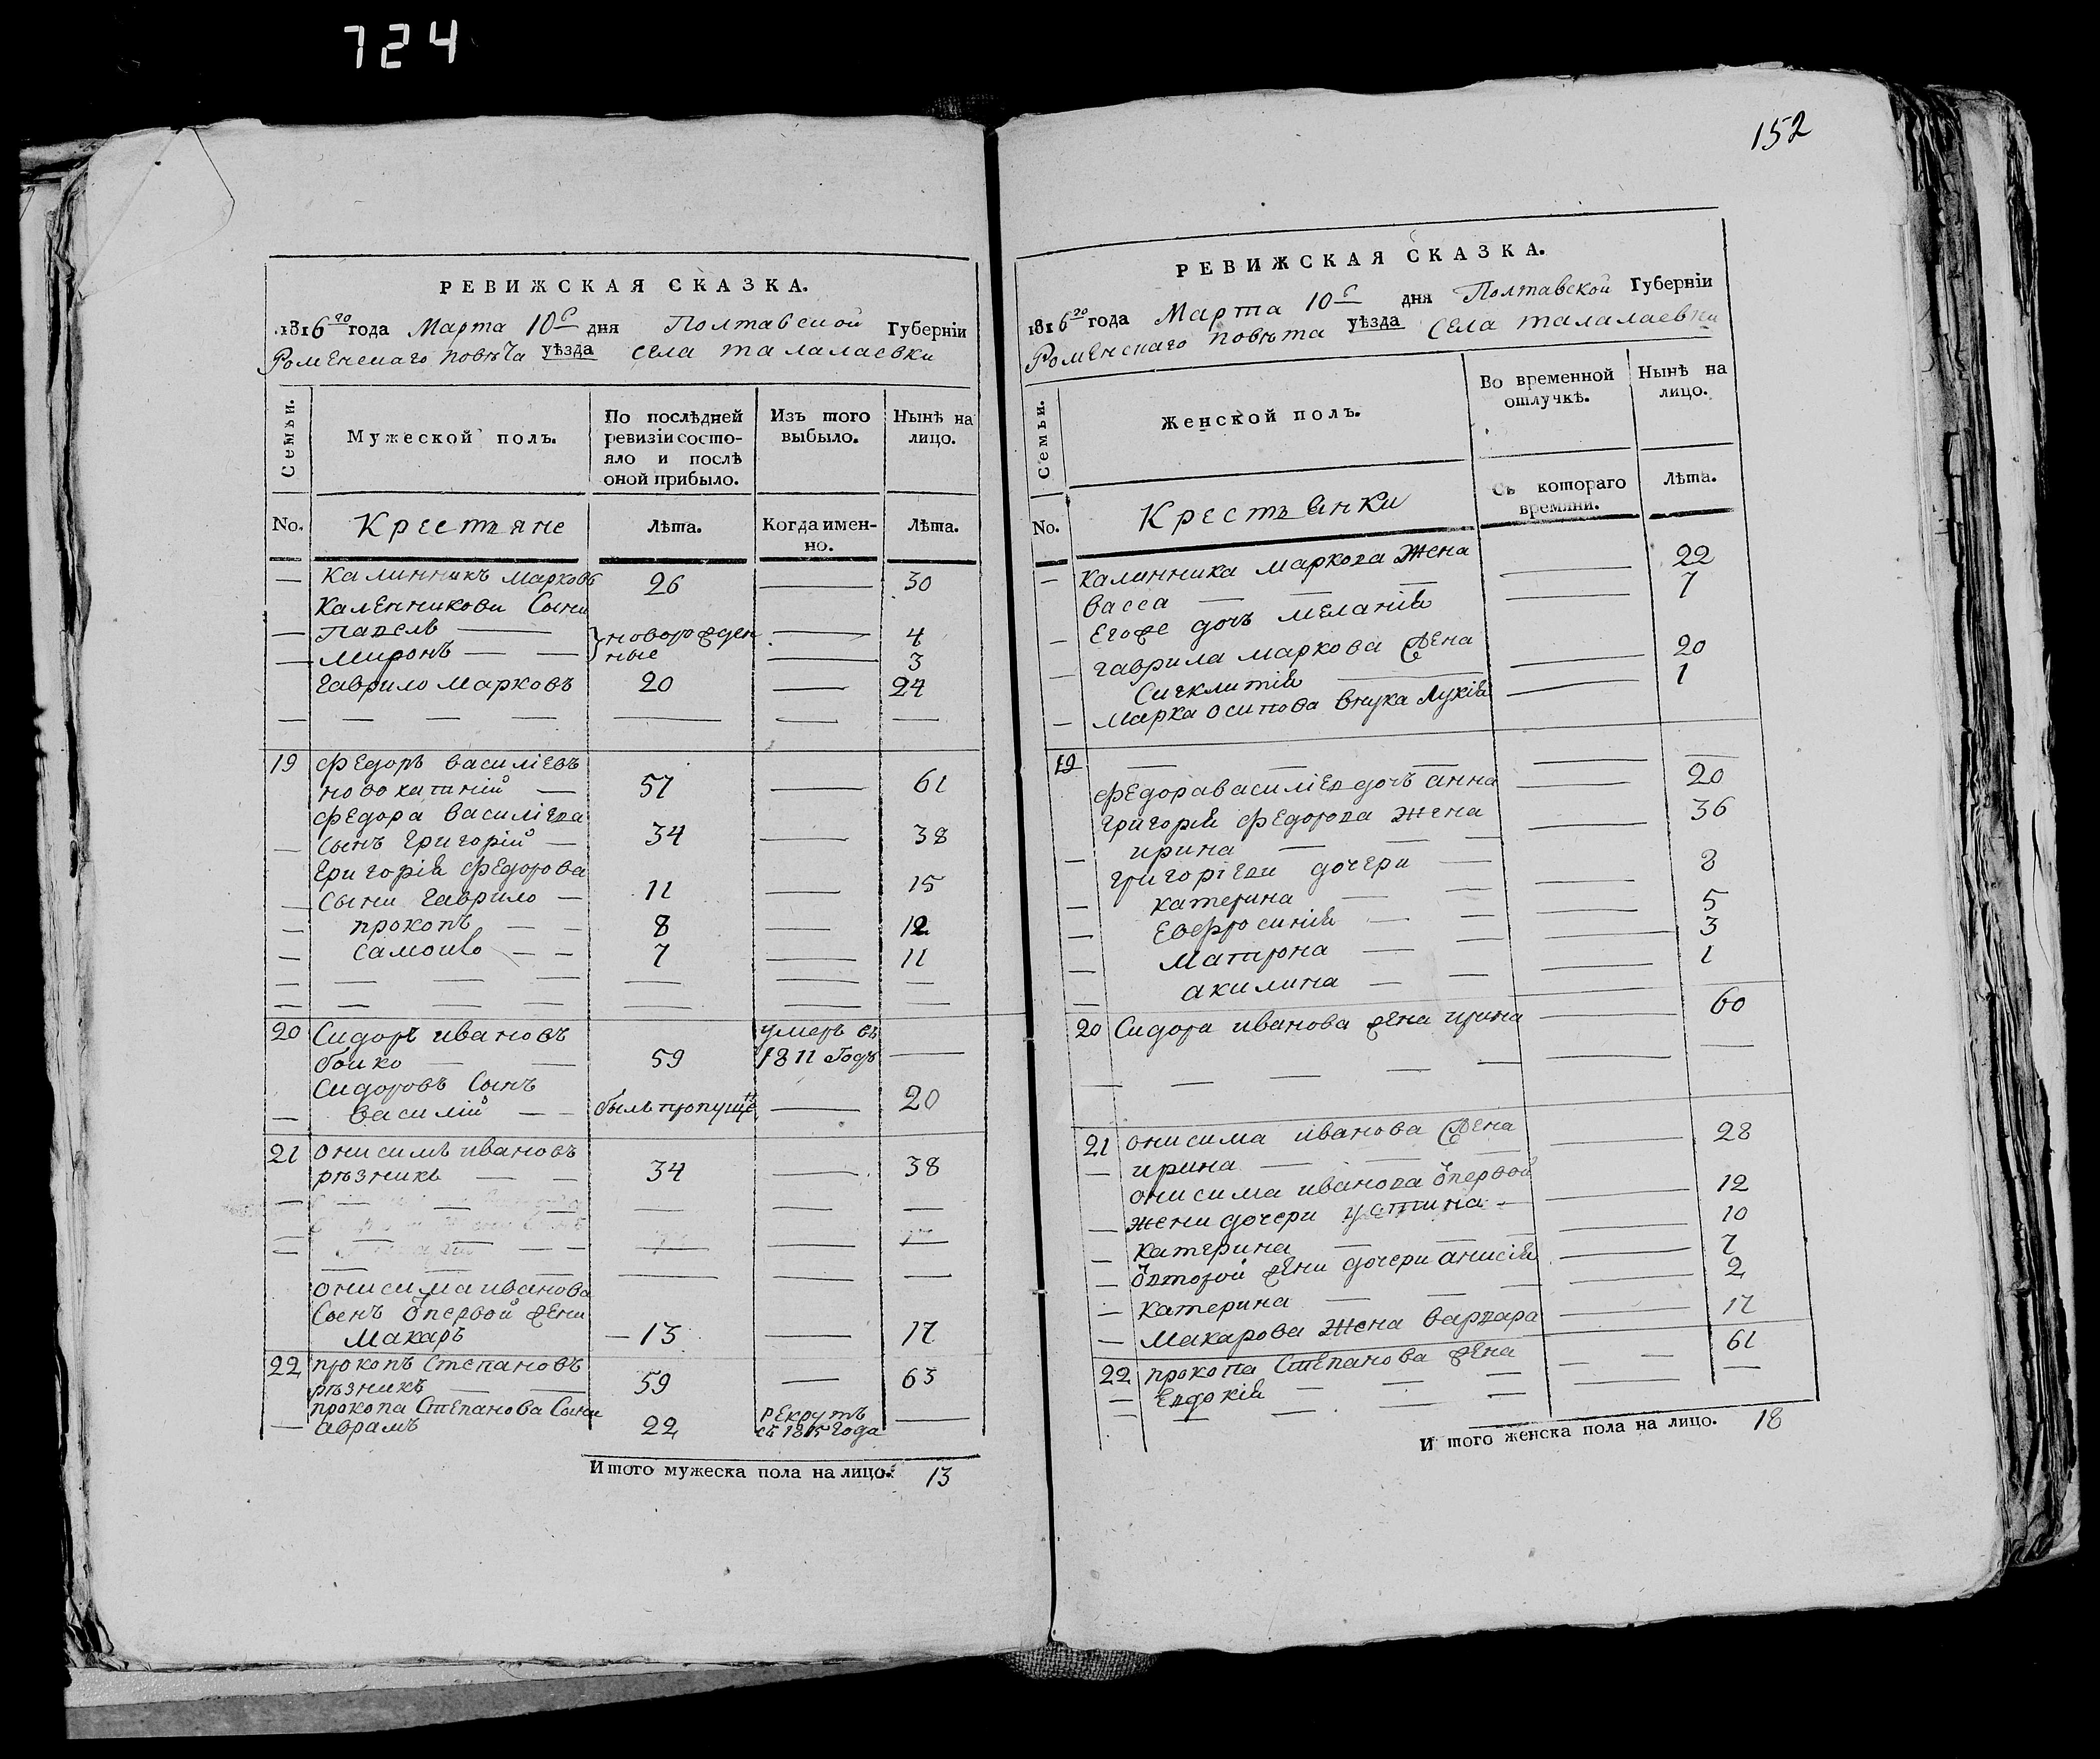 724
152
РЕВИЖСКАЯ СКАЗКА.
1816го года Марта 10го дня Полтавской Губерніи
Роменскаго повѣта уѣзда села талалаевки
Семьи.
Мужеской полъ.
По послѣдней ревизіи состояло и послѣ оной прибыло.
Изъ того выбыло.
Нынѣ на лицо.
No. Крестьяне Лѣта. Когда именно. Лѣта.
— калинникъ марковъ 26 — 30
каленникови Сыни
— павелъ — } новорожден — 4
— миронъ — — ные — 3
гаврило марковъ 20 — 24
19 федоръ василіевъ
новохатній — 57 — 61
федора василіева
— сынъ григорій — 34 — 38
григорія федорова
— сыни гаврило — 11 — 15
— прокопъ — — 8 — 12
— самойло — — 7 — 11
20 Сидоръ ивановъ умеръ въ
бойко — — 59 1811 годъ —
Сидоровъ сынъ
— василій — — былъ пропущен — 20
21 онисимъ ивановъ
рѣзникъ — — 34 — 38
онисима иванова
Сынъ от первой жени
макаръ — 13 — 17
22 прокопъ Степановъ
рѣзникъ — — 59 — 63
прокопа Степанова Сыни рекрутъ
— аврамъ 22 съ 1815 года —
Итого мужеска пола на лицо. 13
РЕВИЖСКАЯ СКАЗКА.
1816го года Марта 10го дня Полтавской Губерніи
Роменскаго повѣта уѣзда села талалаевки
Семьи.
Женской полъ.
Во временной отлучкѣ.
Нынѣ на лицо.
No. Крестьянки Съ котораго времяни. Лѣта.
— калинника маркова жена
васса — — — 22
— егоже дочъ меланія — 7
— гаврила маркова жена
Сигклитія — — 20
— марка осипова внука лукія — 1
19 — — — — —
федора василіева дочъ анна — 20
григорія федорова жена
— ирина — — — 36
григоріеви дочери —
— катерина — — — 8
— Евфросинія — — — 5
— матрона — — — 3
— акилина — — — 1
20 Сидора иванова жена ирина — 60
21 онисима иванова жена
— ирина — — — 28
онисима иванова от первой
— жени дочери устина — 12
— катерина — — — 10
— от второй жени дочери анисія — 7
— катерина — — — 2
— макарова жена варвара — 17
22 прокопа Степанова жена — 61
— Евдокія — — —
Итого женска пола на лицо. 18